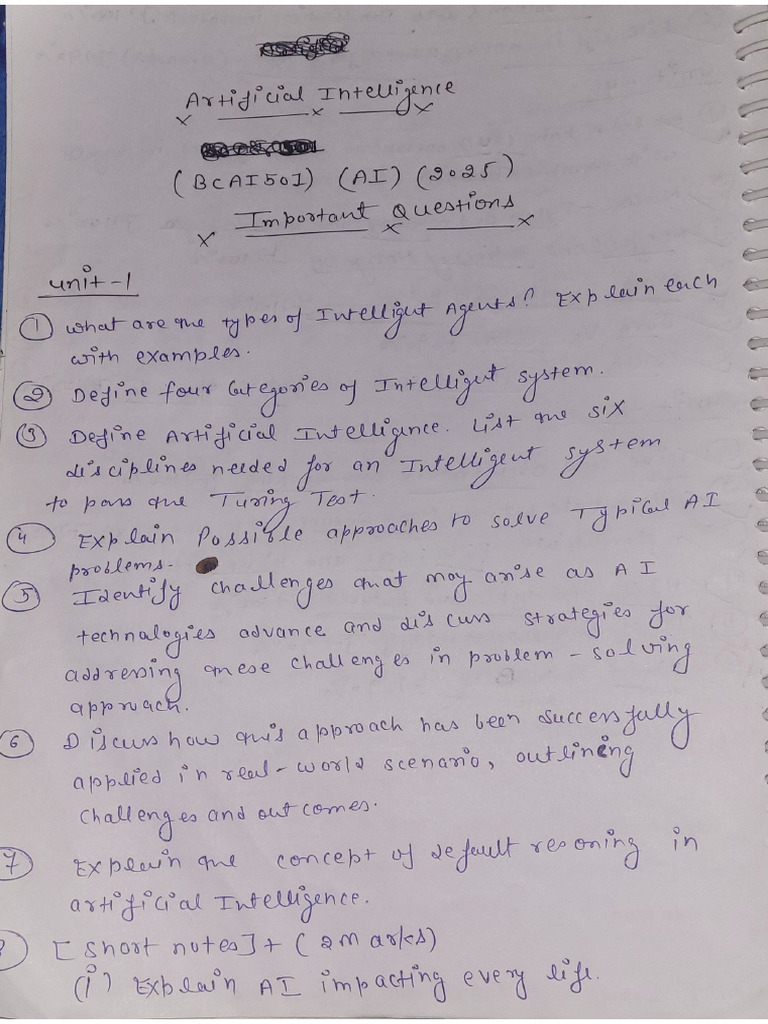 Artificial Intelligence
(BCAI501) (AI) (2025)
Important Questions
unit-1
① What are the types of Intelligent Agents? Explain each
with examples.
② Define four Categories of Intelligent system.
③ Define Artificial Intelligence. List the six
disciplines needed for an Intelligent system
to pass the Turing Test.
④ Explain Possible approaches to solve Typical AI
problems.
⑤ Identify challenges that may arise as AI
technologies advance and discuss strategies for
addressing these challenges in problem-solving
approach.
⑥ Discuss how this approach has been successfully
applied in real-world scenario, outlining
challenges and outcomes.
⑦ Explain the concept of default resoning in
artificial Intelligence.
[Short notes] + (2 Marks)
(i) Explain AI impacting every life.